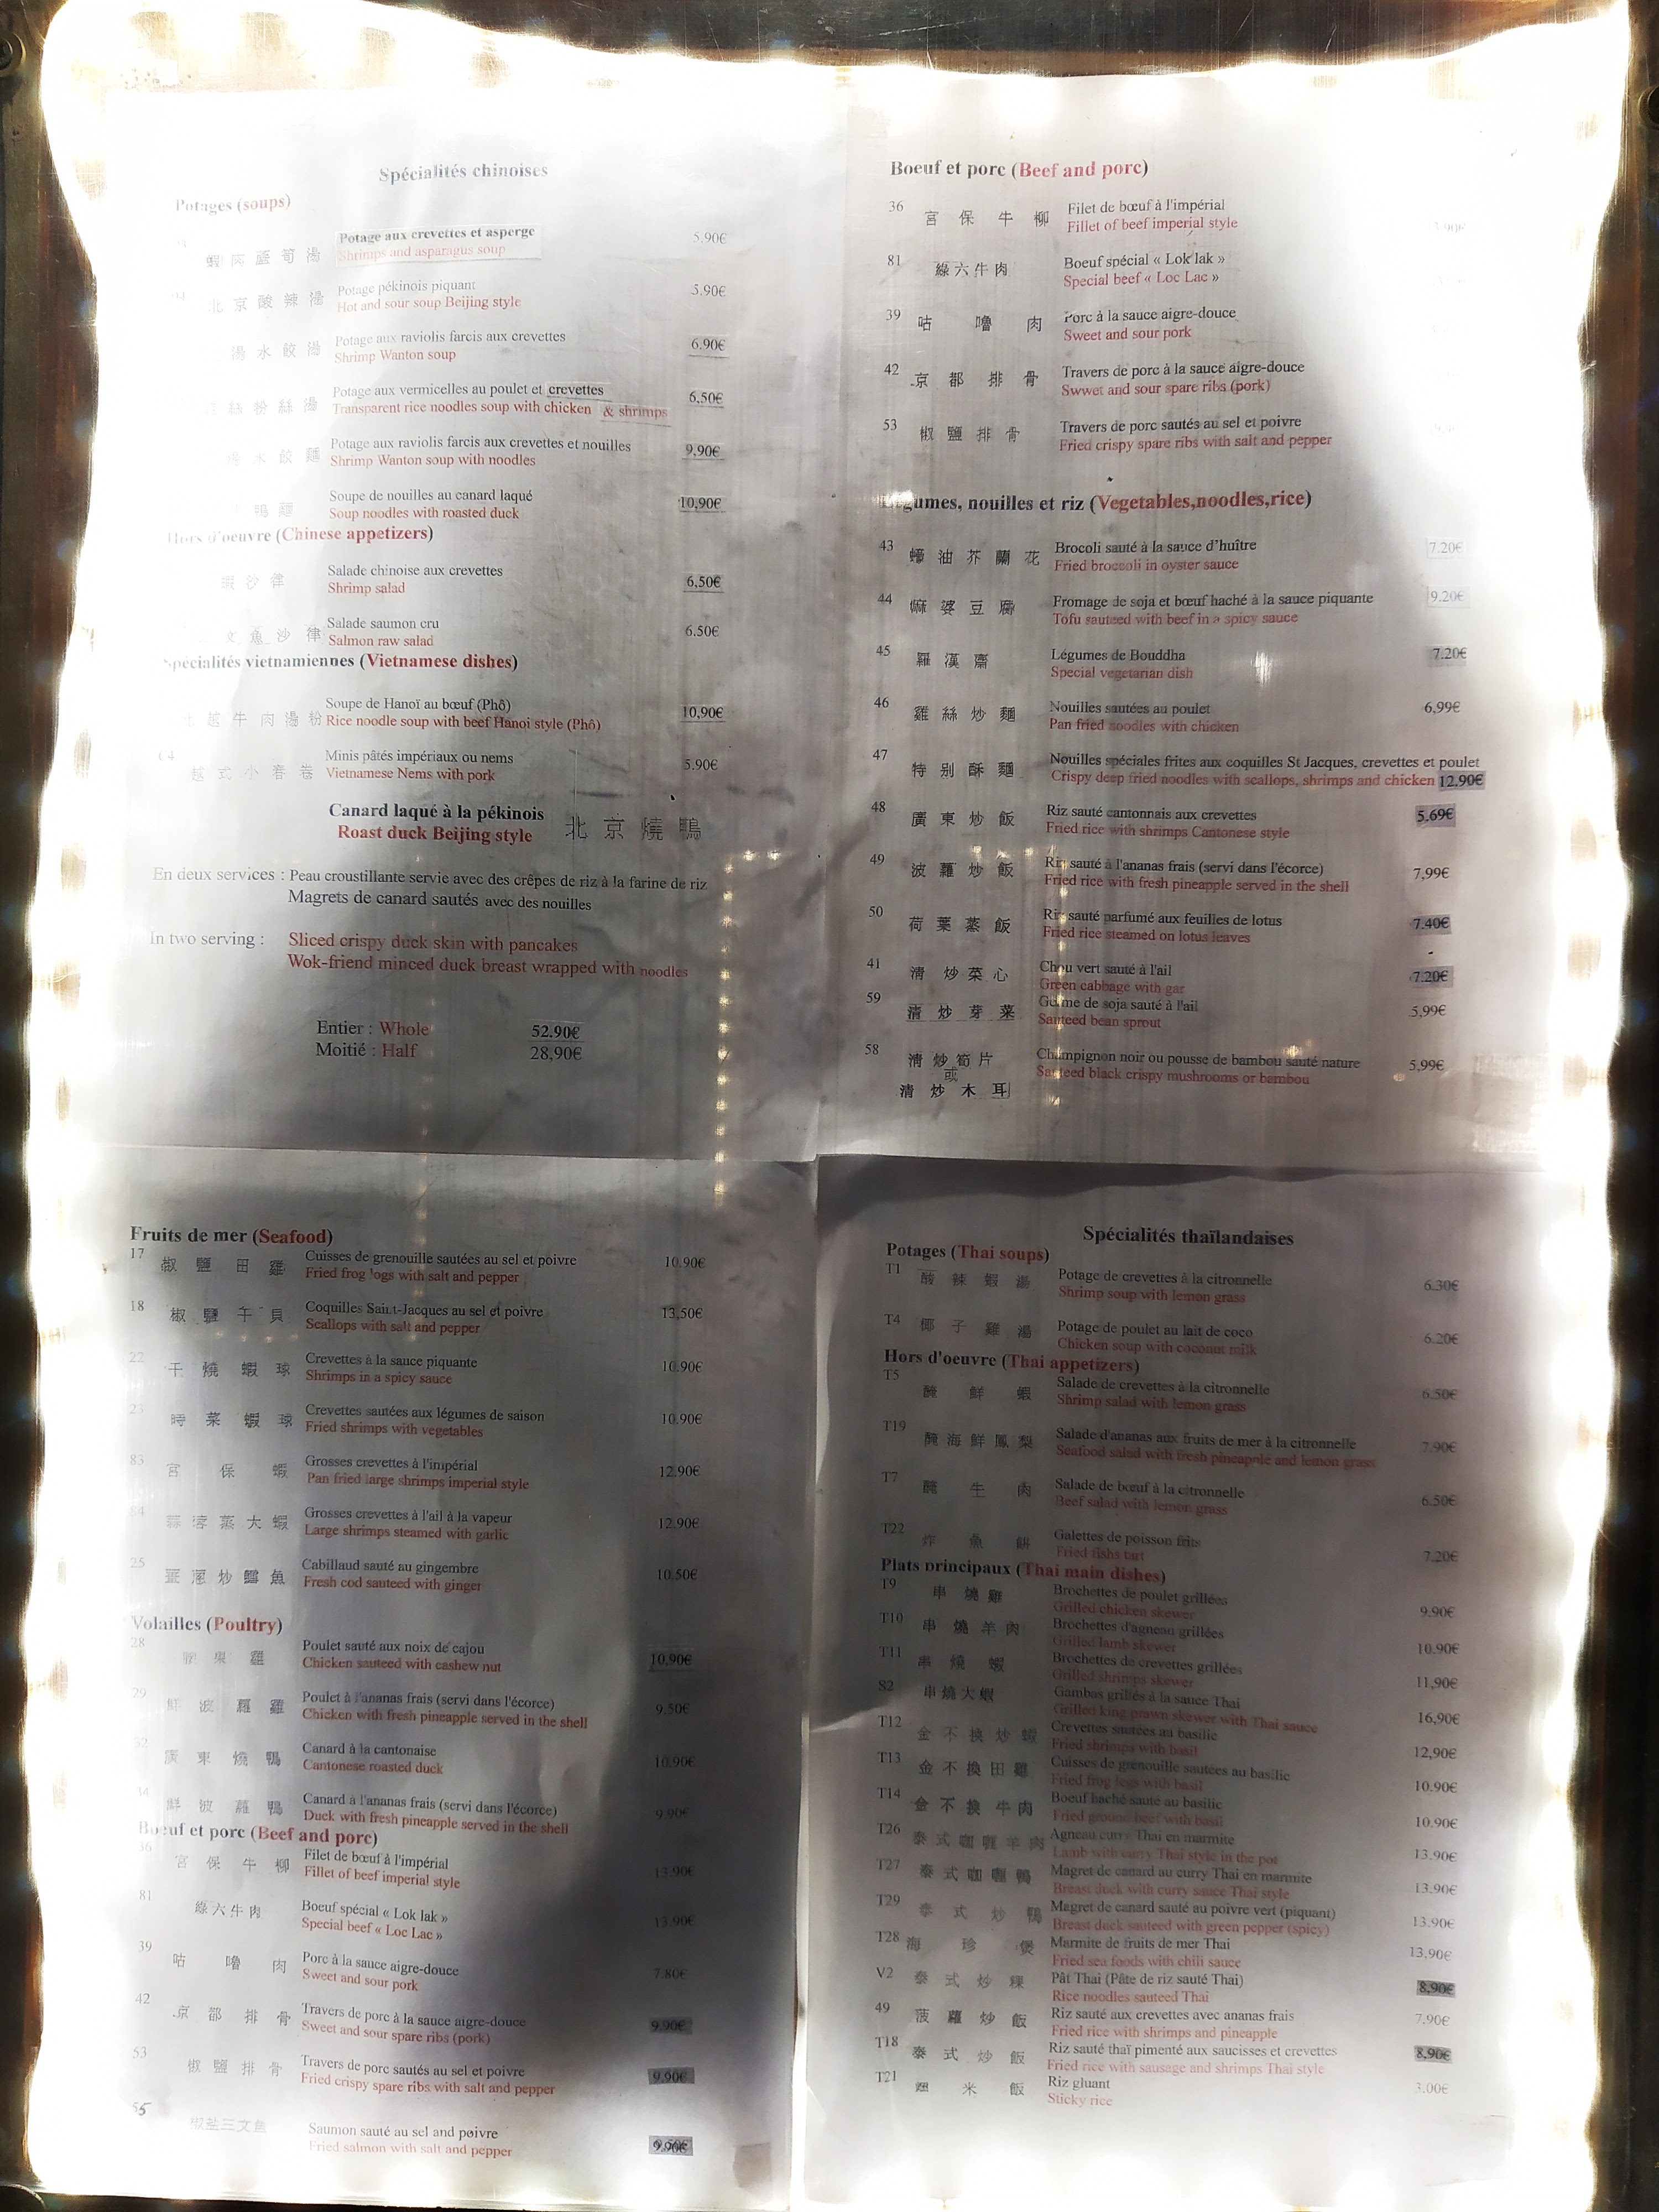 Spécialités chinoises
Potages (soups)
Potage aux crevettes et asperge
蝦 筍 湯 Shrimps and asparagus soup 5.90€
Potage pékinois piquant
北 京 酸 辣 湯 Hot and sour soup Beijing style 5.90€
Potage aux raviolis farcis aux crevettes
湯 水 餃 湯 Shrimp Wanton soup 6.90€
Potage aux vermicelles au poulet et crevettes
絲 粉 絲 湯 Transparent rice noodles soup with chicken & shrimps 6,50€
Potage aux raviolis farcis aux crevettes et nouilles
水 餃 麵 Shrimp Wanton soup with noodles 9,90€
Soupe de nouilles au canard laqué
鴨 麵 Soup noodles with roasted duck 10,90€
Hors d'oeuvre (Chinese appetizers)
Salade chinoise aux crevettes
蝦 沙 律 Shrimp salad 6,50€
Salade saumon cru
文 魚 沙 律 Salmon raw salad 6.50€
Spécialités vietnamiennes (Vietnamese dishes)
Soupe de Hanoï au bœuf (Phô)
越 牛 肉 湯 粉 Rice noodle soup with beef Hanoi style (Phô) 10,90€
C4 Minis pâtés impériaux ou nems
越 式 小 春 卷 Vietnamese Nems with pork 5.90€
Canard laqué à la pékinois
Roast duck Beijing style 北 京 燒 鴨
En deux services : Peau croustillante servie avec des crêpes de riz à la farine de riz
Magrets de canard sautés avec des nouilles
In two serving : Sliced crispy duck skin with pancakes
Wok-friend minced duck breast wrapped with noodles
Entier : Whole 52.90€
Moitié : Half 28,90€
Boeuf et porc (Beef and porc)
36 宮 保 牛 柳 Filet de bœuf à l'impérial
Fillet of beef imperial style
81 綠 六 牛 肉 Boeuf spécial « Lok lak »
Special beef « Loc Lac »
39 咕 嚕 肉 Porc à la sauce aigre-douce
Sweet and sour pork
42 京 都 排 骨 Travers de porc à la sauce aigre-douce
Swwet and sour spare ribs (pork)
53 椒 鹽 排 骨 Travers de porc sautés au sel et poivre
Fried crispy spare ribs with salt and pepper
gumes, nouilles et riz (Vegetables,noodles,rice)
43 蠔 油 芥 蘭 花 Brocoli sauté à la sauce d'huître 7.20€
Fried broccoli in oyster sauce
44 麻 婆 豆 腐 Fromage de soja et bœuf haché à la sauce piquante 9.20€
Tofu sauteed with beef in a spicy sauce
45 羅 漢 齋 Légumes de Bouddha 7.20€
Special vegetarian dish
46 雞 絲 炒 麵 Nouilles sautées au poulet 6,99€
Pan fried noodles with chicken
47 特 別 酥 麵 Nouilles spéciales frites aux coquilles St Jacques, crevettes et poulet
Crispy deep fried noodles with scallops, shrimps and chicken 12,90€
48 廣 東 炒 飯 Riz sauté cantonnais aux crevettes 5.69€
Fried rice with shrimps Cantonese style
49 波 蘿 炒 飯 Riz sauté à l'ananas frais (servi dans l'écorce) 7,99€
Fried rice with fresh pineapple served in the shell
50 荷 葉 蒸 飯 Riz sauté parfumé aux feuilles de lotus 7.40€
Fried rice steamed on lotus leaves
41 清 炒 菜 心 Chou vert sauté à l'ail 7.20€
Green cabbage with gar
59 清 炒 芽 菜 Germe de soja sauté à l'ail 5,99€
Sauteed bean sprout
58 清 炒 筍 片 Champignon noir ou pousse de bambou sauté nature 5,99€
或 Sauteed black crispy mushrooms or bambou
清 炒 木 耳
Fruits de mer (Seafood)
17 椒 鹽 田 雞 Cuisses de grenouille sautées au sel et poivre 10.90€
Fried frog logs with salt and pepper
18 椒 鹽 干 貝 Coquilles Saint-Jacques au sel et poivre 13,50€
Scallops with salt and pepper
22 干 燒 蝦 球 Crevettes à la sauce piquante 10.90€
Shrimps in a spicy sauce
23 時 菜 蝦 球 Crevettes sautées aux légumes de saison 10.90€
Fried shrimps with vegetables
83 宮 保 蝦 Grosses crevettes à l'impérial 12.90€
Pan fried large shrimps imperial style
84 蒜 蓉 蒸 大 蝦 Grosses crevettes à l'ail à la vapeur 12.90€
Large shrimps steamed with garlic
25 薑 蔥 炒 鱈 魚 Cabillaud sauté au gingembre 10.50€
Fresh cod sauteed with ginger
Volailles (Poultry)
28 果 雞 Poulet sauté aux noix de cajou 10,90€
Chicken sauteed with cashew nut
29 鮮 波 蘿 雞 Poulet à l'ananas frais (servi dans l'écorce) 9.50€
Chicken with fresh pineapple served in the shell
32 廣 東 燒 鴨 Canard à la cantonaise 10,90€
Cantonese roasted duck
34 鮮 波 蘿 鴨 Canard à l'ananas frais (servi dans l'écorce) 9.90€
Duck with fresh pineapple served in the shell
Boeuf et porc (Beef and porc)
36 宮 保 牛 柳 Filet de bœuf à l'impérial 13.90€
Fillet of beef imperial style
81 綠 六 牛 肉 Boeuf spécial « Lok lak » 13.90€
Special beef « Loc Lac »
39 咕 嚕 肉 Porc à la sauce aigre-douce 7.80€
Sweet and sour pork
42 京 都 排 骨 Travers de porc à la sauce aigre-douce 9.90€
Sweet and sour spare ribs (pork)
53 椒 鹽 排 骨 Travers de porc sautés au sel et poivre 9.90€
Fried crispy spare ribs with salt and pepper
55 椒盐三文鱼 Saumon sauté au sel and poivre
Fried salmon with salt and pepper
Spécialités thaïlandaises
Potages (Thai soups)
T1 酸 辣 蝦 湯 Potage de crevettes à la citronnelle 6.30€
Shrimp soup with lemon grass
T4 椰 子 雞 湯 Potage de poulet au lait de coco 6.20€
Chicken soup with coconut milk
Hors d'oeuvre (Thai appetizers)
T5 醃 鮮 蝦 Salade de crevettes à la citronnelle 6.50€
Shrimp salad with lemon grass
T19 醃 海 鮮 鳳 梨 Salade d'ananas aux fruits de mer à la citronnelle 7.90€
Seafood salad with fresh pineapple and lemon grass
T7 醃 牛 肉 Salade de bœuf à la citronnelle 6.50€
Beef salad with lemon grass
T22 炸 魚 餅 Galettes de poisson frits 7.20€
Fried fishs tart
Plats principaux (Thai main dishes)
T9 串 燒 雞 Brochettes de poulet grillées 9.90€
Grilled chicken skewer
T10 串 燒 羊 肉 Brochettes d'agneau grillées 10.90€
Grilled lamb skewer
T11 串 燒 蝦 Brochettes de crevettes grillées 11,90€
Grilled shrimps skewer
S2 串 燒 大 蝦 Gambas grillés à la sauce Thai 16,90€
Grilled king prawn skewer with Thai sauce
T12 金 不 換 炒 蝦 Crevettes sautées au basilic 12,90€
Fried shrimps with basil
T13 金 不 換 田 雞 Cuisses de grenouille sautées au basilic 10.90€
Fried frog legs with basil
T14 金 不 換 牛 肉 Boeuf haché sauté au basilic 10.90€
Fried ground beef with basil
T26 泰 式 咖 喱 羊 肉 Agneau curry Thai en marmite 13.90€
Lamb with curry Thai style in the pot
T27 泰 式 咖 喱 鴨 Magret de canard au curry Thai en marmite 13.90€
Breast duck with curry sauce Thai style
T29 泰 式 炒 鴨 Magret de canard sauté au poivre vert (piquant) 13.90€
Breast duck sauteed with green pepper (spicy)
T28 海 珍 煲 Marmite de fruits de mer Thai 13,90€
Fried sea foods with chili sauce
V2 泰 式 炒 粿 Pât Thai (Pâte de riz sauté Thai) 8,90€
Rice noodles sauteed Thai
49 菠 蘿 炒 飯 Riz sauté aux crevettes avec ananas frais 7.90€
Fried rice with shrimps and pineapple
T18 泰 式 炒 飯 Riz sauté thaï pimenté aux saucisses et crevettes 8,90€
Fried rice with sausage and shrimps Thai style
T21 米 飯 Riz gluant 3.00€
Sticky rice